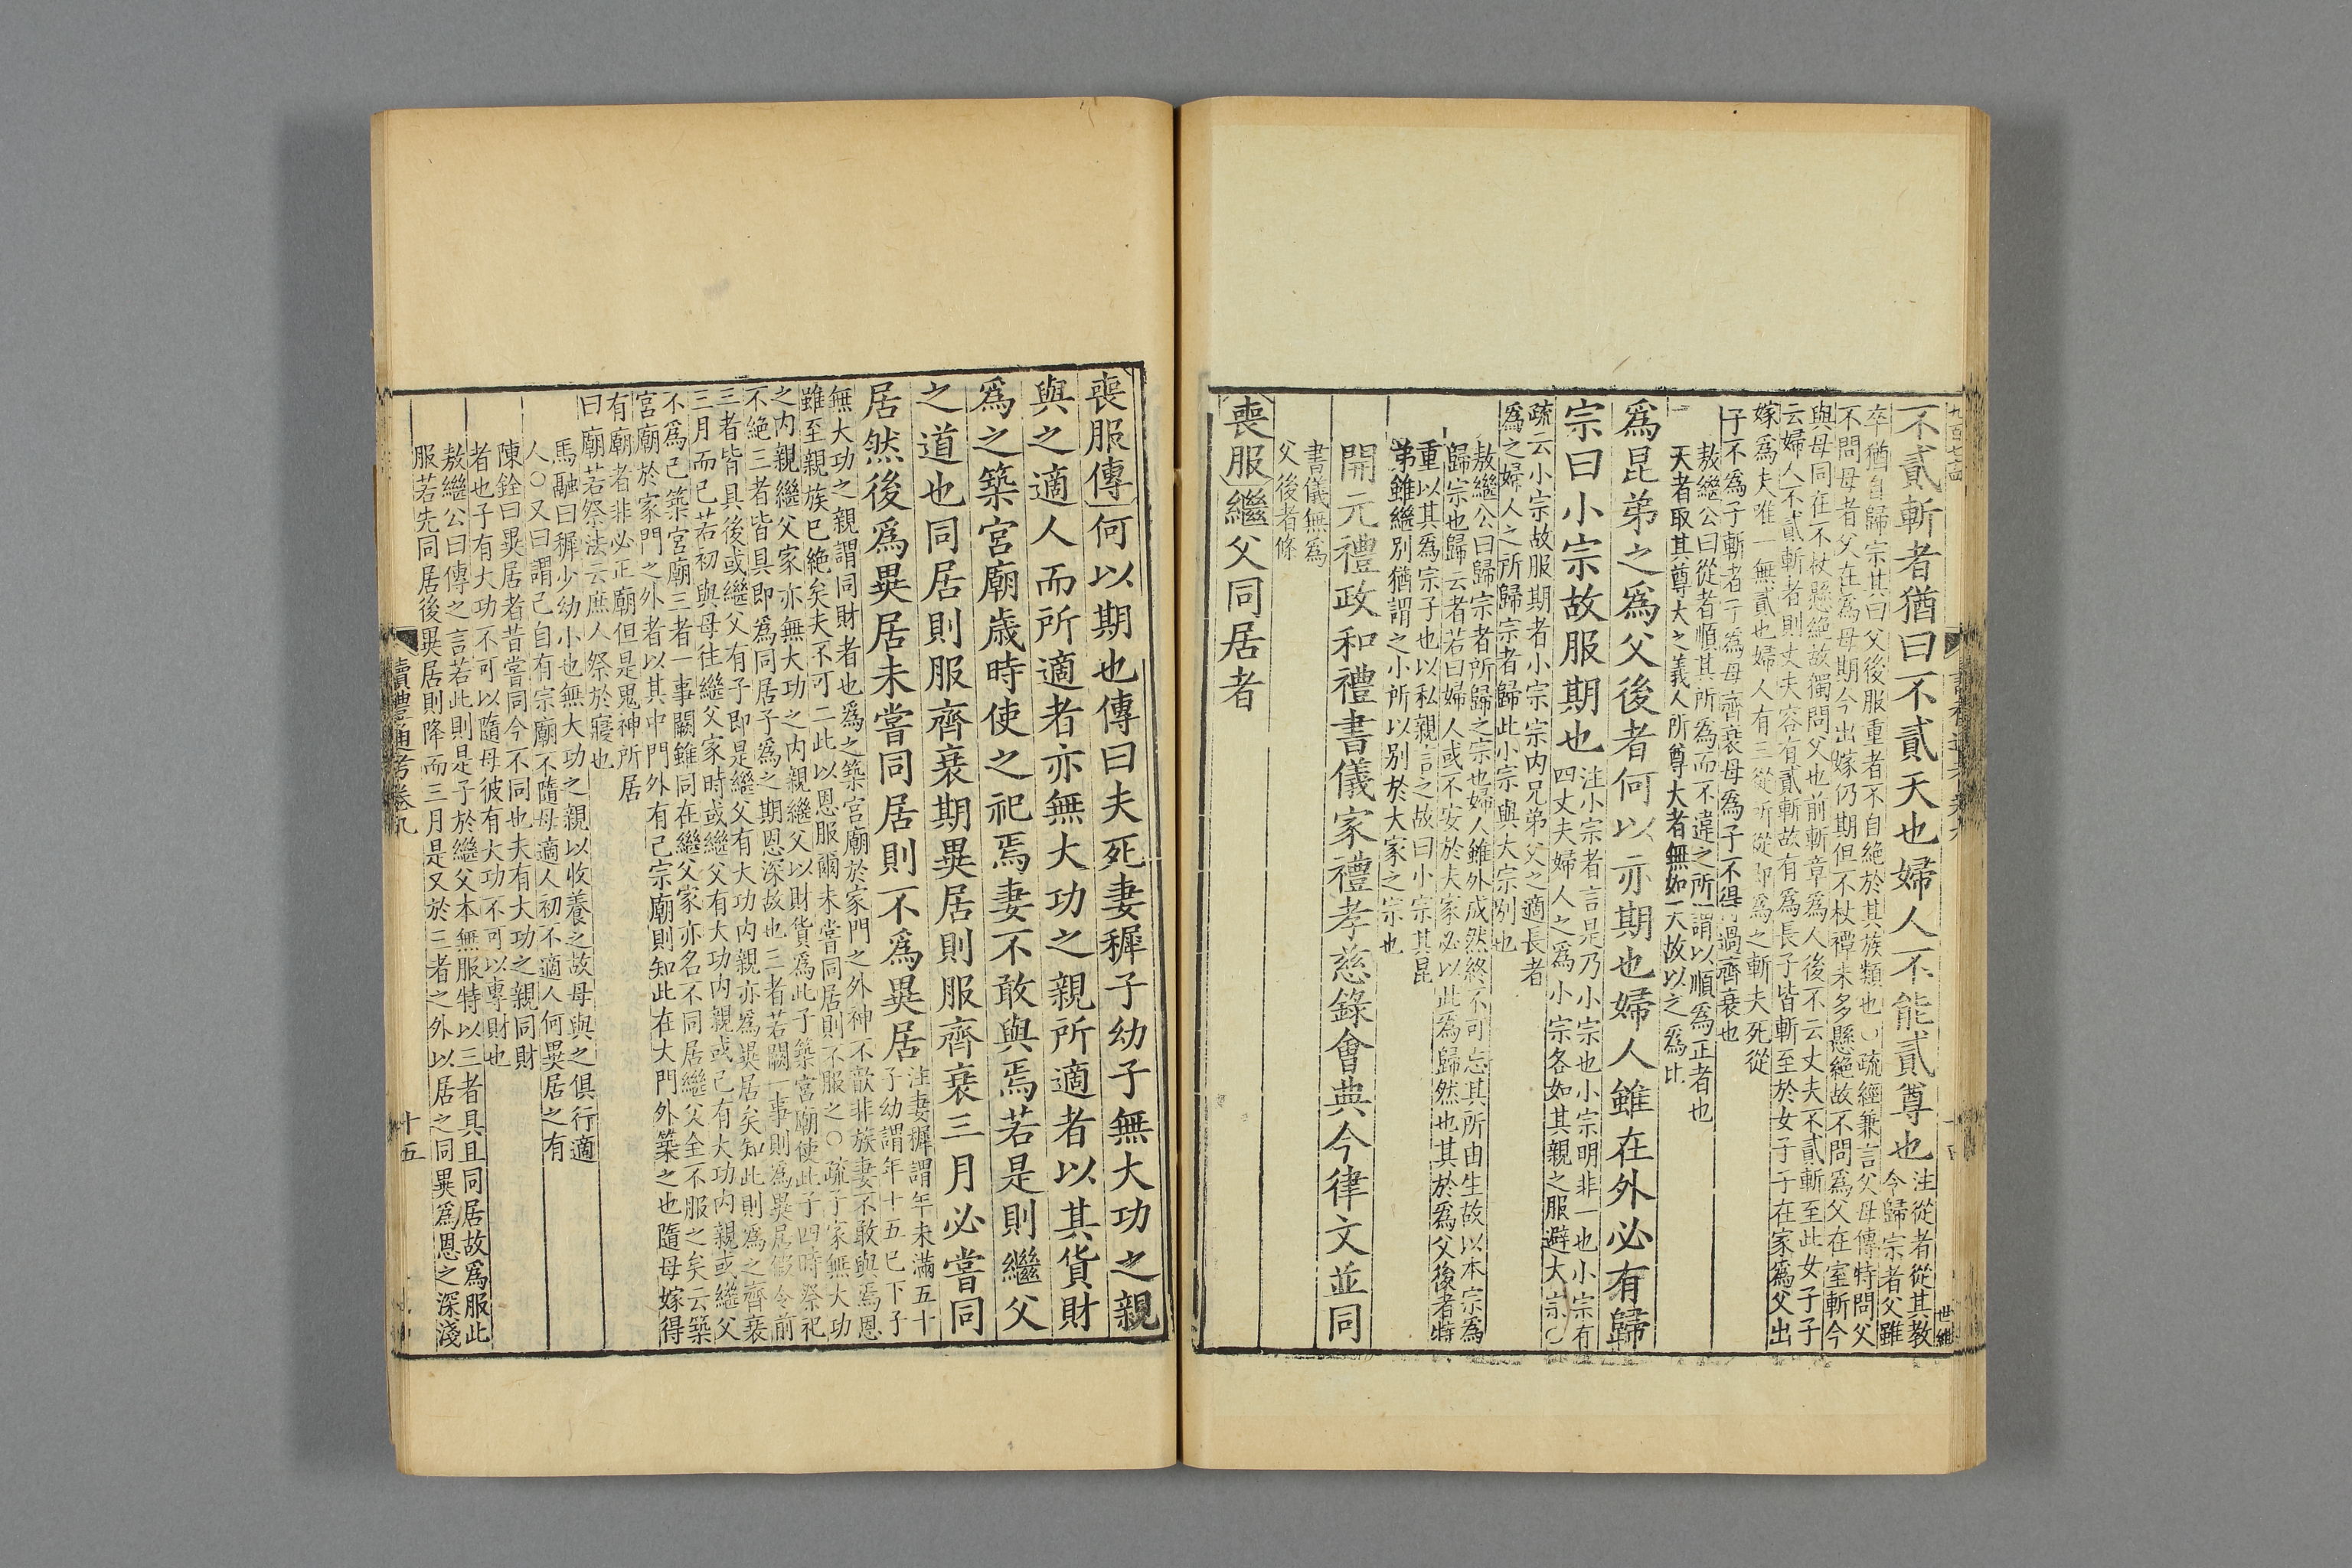 不貳斬者猶曰不貳天也婦人不能貳尊也
注從者從其教
今歸宗者父雖
卒猶自歸宗其曰父後服重者不自絶於其族類也○疏經兼言父母傳特問父
不問母者父在爲母期今出嫁仍期但不杖禫未多懸絶故不問爲父在室斬今
與母同在不杖懸絶故獨問父也前斬章爲人後不云丈夫不貳斬至此女子子
云婦人不貳斬者則丈夫容有貳斬故有爲長子皆斬至於女子子在家爲父出
嫁爲夫唯一無貳也婦人有三從所從即爲之斬夫死從
子不爲子斬者子爲母齊衰母爲子不得過齊衰也
敖繼公曰從者順其所爲而不違之所謂以順爲正者也
天者取其尊大之義人所尊大者無如天故以之爲比
爲昆弟之爲父後者何以亦期也婦人雖在外必有歸
宗曰小宗故服期也
注小宗者言是乃小宗也小宗明非一也小宗有
四丈夫婦人之爲小宗各如其親之服避大宗○
疏云小宗故服期者小宗宗内兄弟父之適長者
爲之婦人之所歸宗者歸此小宗與大宗別也
敖繼公曰歸宗者所歸之宗也婦人雖外成然終不可忘其所由生故以本宗爲
歸宗也歸云者若曰婦人或不安於夫家必以此爲歸然也其於爲父後者特
重以其爲宗子也以私親言之故曰小宗其昆
弟雖繼別猶謂之小所以別於大家之宗也
開元禮政和禮書儀家禮孝慈錄會典今律文並同
書儀無爲
父後者條
喪服繼父同居者
喪服傳何以期也傳曰夫死妻穉子幼子無大功之親
與之適人而所適者亦無大功之親所適者以其貨財
爲之築宮廟歲時使之祀焉妻不敢與焉若是則繼父
之道也同居則服齊衰期異居則服齊衰三月必嘗同
居然後爲異居未嘗同居則不爲異居
注妻穉謂年未滿五十
子幼謂年十五已下子
無大功之親謂同財者也爲之築宮廟於家門之外神不歆非族妻不敢與焉恩
雖至親族已絶矣夫不可二此以恩服爾未嘗同居則不服之○疏子家無大功
之内親繼父家亦無大功之内親繼父以財貨爲此子築宮廟使此子四時祭祀
不絶三者皆具即爲同居子爲之期恩深故也三者若闕一事則爲異居假令前
三者皆具後或繼父有子即是繼父有大功内親亦爲異居矣知此則爲之齊衰
三月而已若初與母往繼父家時或繼父有大功内親或己有大功内親或繼父
不爲己築宮廟三者一事闕雖同在繼父家亦名不同居繼父全不服之矣云築
宮廟於家門之外者以其中門外有己宗廟則知此在大門外築之也隨母嫁得
有廟者非必正廟但是鬼神所居
曰廟若祭法云庶人祭於寢也
馬融曰穉少幼小也無大功之親以收養之故母與之俱行適
人○又曰謂己自有宗廟不隨母適人初不適人何異居之有
陳銓曰異居者昔嘗同今不同也夫有大功之親同財
者也子有大功不可以隨母彼有大功不可以專財也
敖繼公曰傳之言若此則是子於繼父本無服特以三者具且同居故爲服此
服若先同居後異居則降而三月是又於三者之外以居之同異爲恩之深淺
讀禮通考卷九
十五